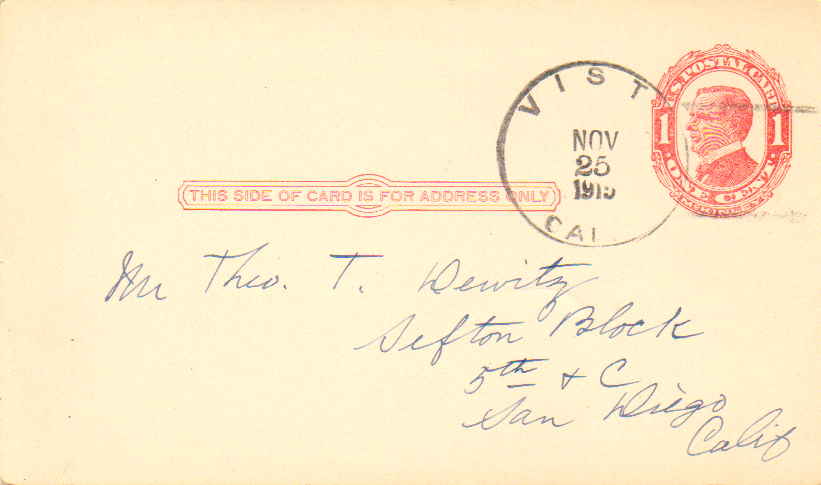 U.S. POSTAL CARD
1 1
VIST
NOV
25
CAL
THIS SIDE OF CARD IS FOR ADDRESS ONLY
Mr Theo. T. Dewitz
Sefton Block
5th + C
San Diego
Calif